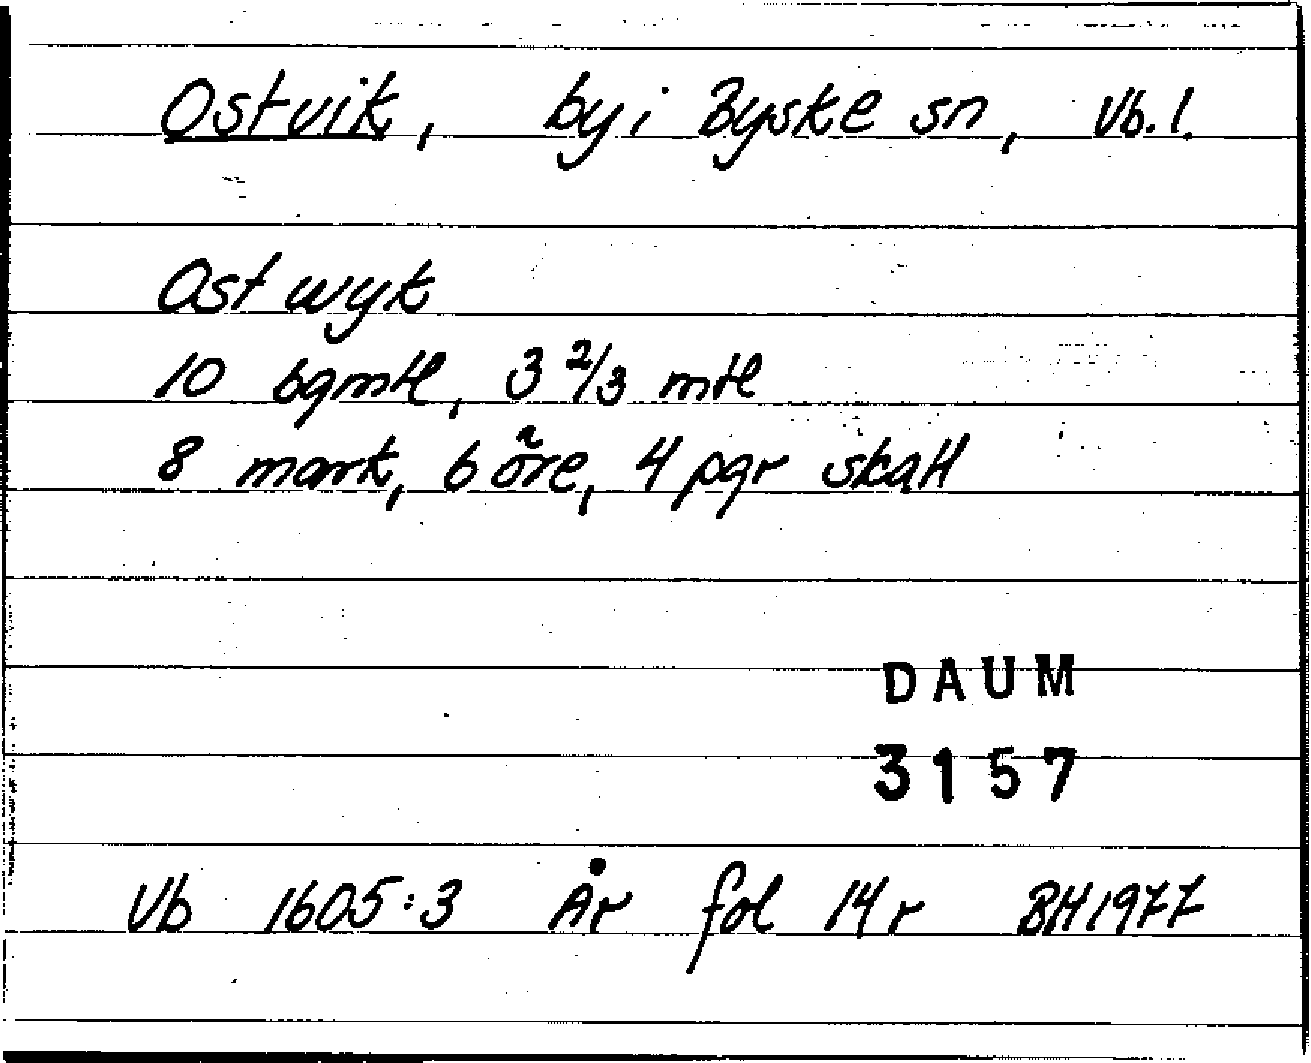 Ostvik, by i Byske sn, Vb. l.
Ost wyk
10 bgmtl, 3 2/3 mtl
8 mark, 6 öre, 4 pgr skatt
DAUM
3157
Vb 1605:3 År fol 14 r BH 1977